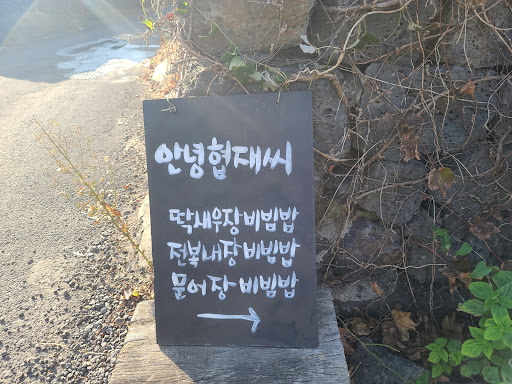 안녕협재씨
딱새우장비빔밥
전복내장비빔밥
문어장비빔밥
→